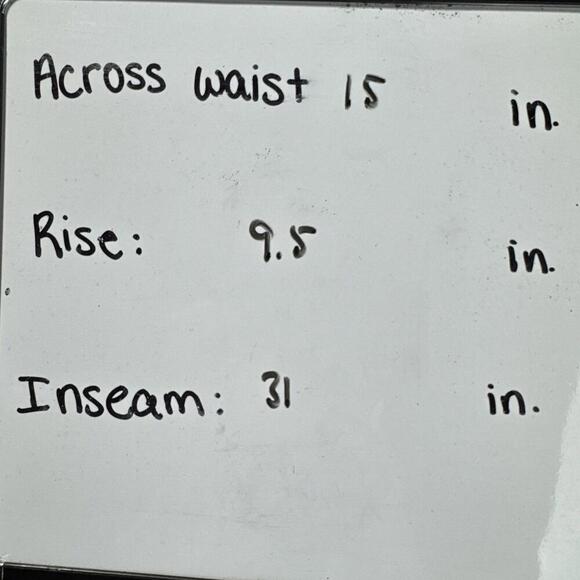 Across waist 15 in.
Rise: 9.5 in.
Inseam: 31 in.